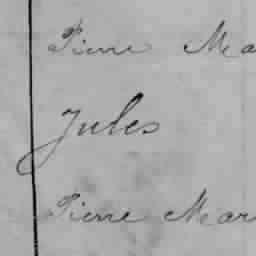 Pierre Ma
Jules
Pierre Mar